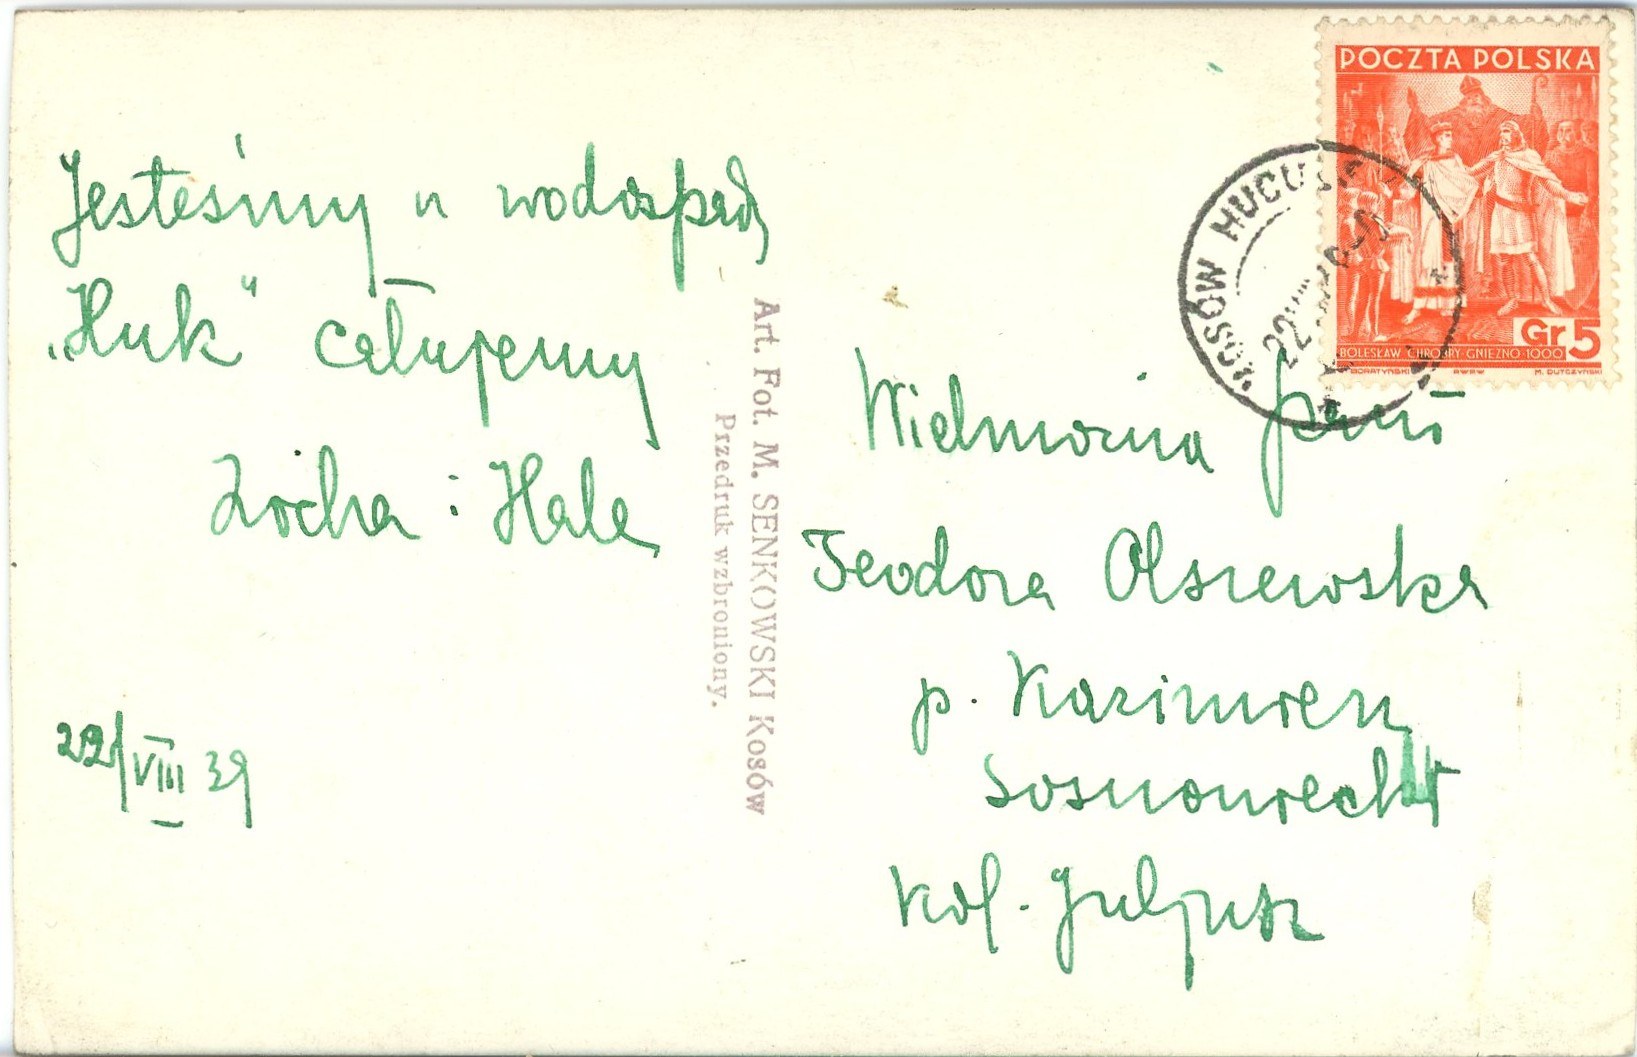 Jesteśmy u wodospadu
"Huk" całujemy
Zocha i Hala
22/VIII 39
Art. Fot. M. SENKOWSKI Kosów
Przedruk wzbroniony.
POCZTA POLSKA
Gr 5
BOLESŁAW CHROBRY-GNIEZNO-1000
M. DUTCZYŃSKI
KOSÓW HUCUL
22
Wielmożna Pani
Teodora Olszewska
p. Kazimierz
Sosnowiecki
Kol. Juljusz